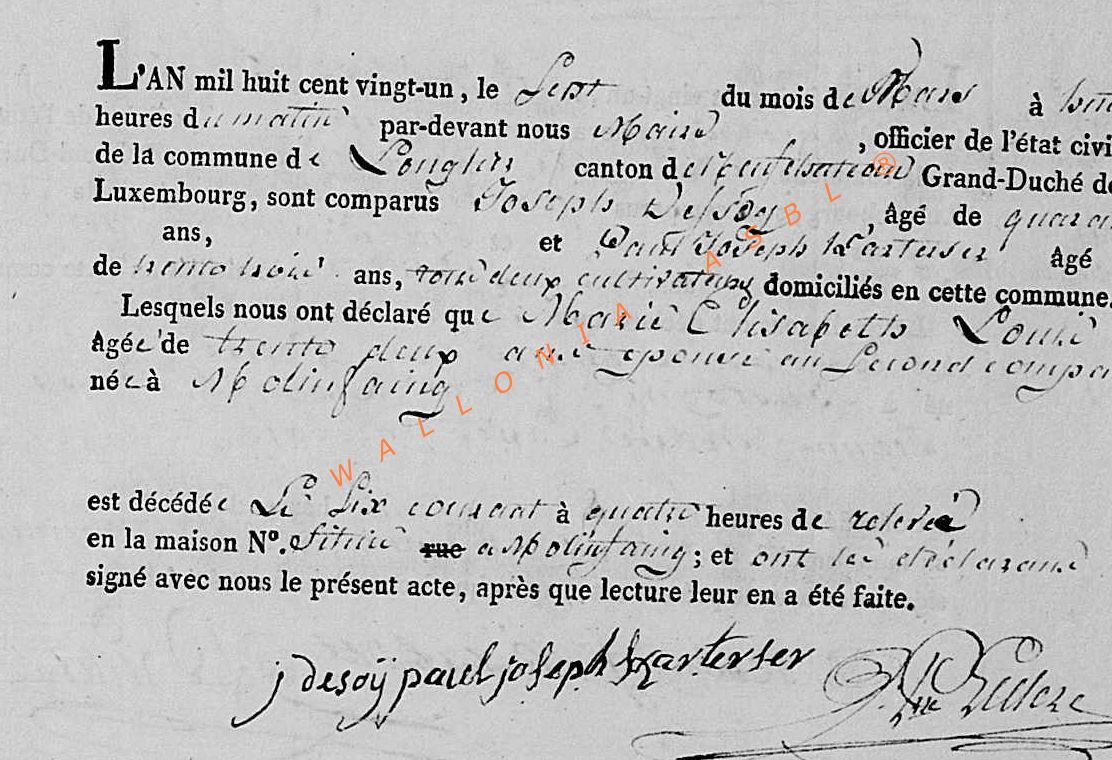 L'AN mil huit cent vingt-un, le Sept du mois de Mars à huit
heures du matin par-devant nous Maire , officier de l'état civi
de la commune de Longlier canton de neufchateau Grand-Duché de
Luxembourg, sont comparus Joseph Dessoy , âgé de quaran
ans, et Paul Joseph âgé
de trente trois ans, tous deux cultivateurs domiciliés en cette commune.
Lesquels nous ont déclaré que Marie Elisabeth Louis
Agée de trente deux ans epouse au Second compa
née à Molinfaing
est décédée Le Six courant à quatre heures de relevée
en la maison Nº. située rue a Molinfaing ; et ont les déclarans
signé avec nous le présent acte, après que lecture leur en a été faite.
j desoÿ paul joseph
WALLONIA ASBL ®